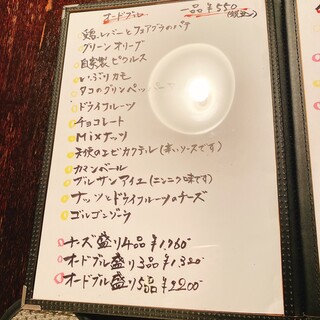 オードブル 一品 ¥550
鶏レバーとフォアグラのパテ
グリーン オリーブ
自家製 ピクルス
いぶりカモ
タコのグリンペッパー
ドライフルーツ
チョコレート
Mixナッツ
天使のエビカクテル(赤いソースです)
カマンベール
ブルザンアイユ(ニンニク味です)
ナッツとドライフルーツのチーズ
ゴルゴンゾーラ
チーズ盛り4品 ¥1,760-
オードブル盛り3品 ¥1,320-
オードブル盛り5品 ¥2200-